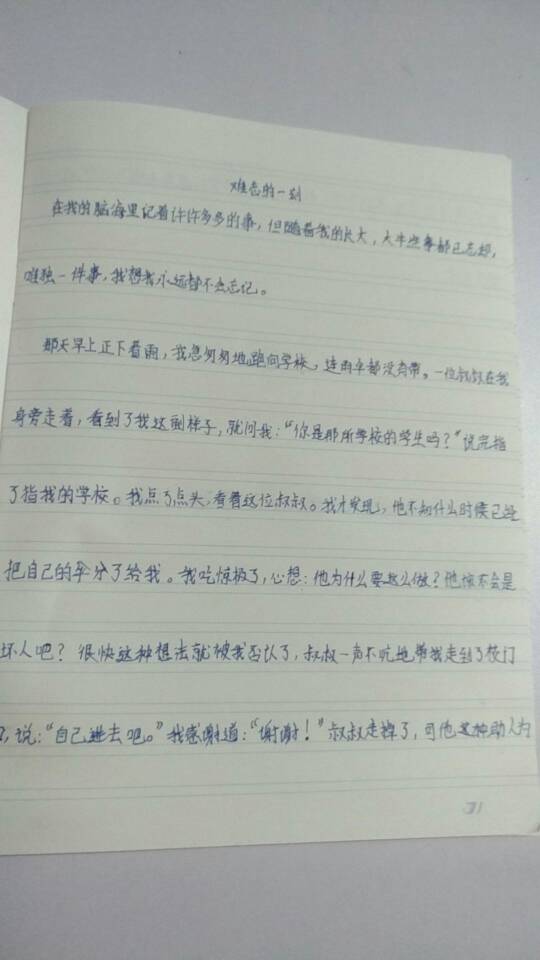 难忘的一刻
在我的脑海里记着许许多多的事，但随着我的长大，大半些事都已忘却，
唯独一件事，我想我永远都不会忘记。
那天早上正下着雨，我急匆匆地跑向学校，连雨伞都没有带。一位叔叔在我
身旁走着，看到了我这副样子，就问我：“你是那所学校的学生吗？”说完指
了指我的学校。我点了点头，看着这位叔叔。我才发现，他不知什么时候已经
把自己的伞分了给我。我吃惊极了，心想：他为什么要这么做？他该不会是
坏人吧？很快这种想法就被我否认了，叔叔一声不吭地带我走到了校门
口，说：“自己进去吧。”我感谢道：“谢谢！”叔叔走掉了，可他这种助人为
31